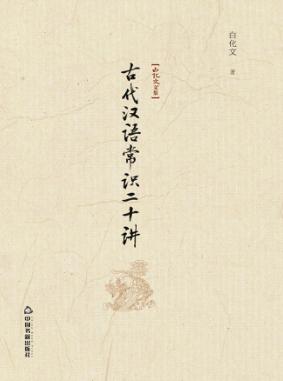 白化文 著
【白化文文集】
古代汉语常识二十讲
中国书籍出版社